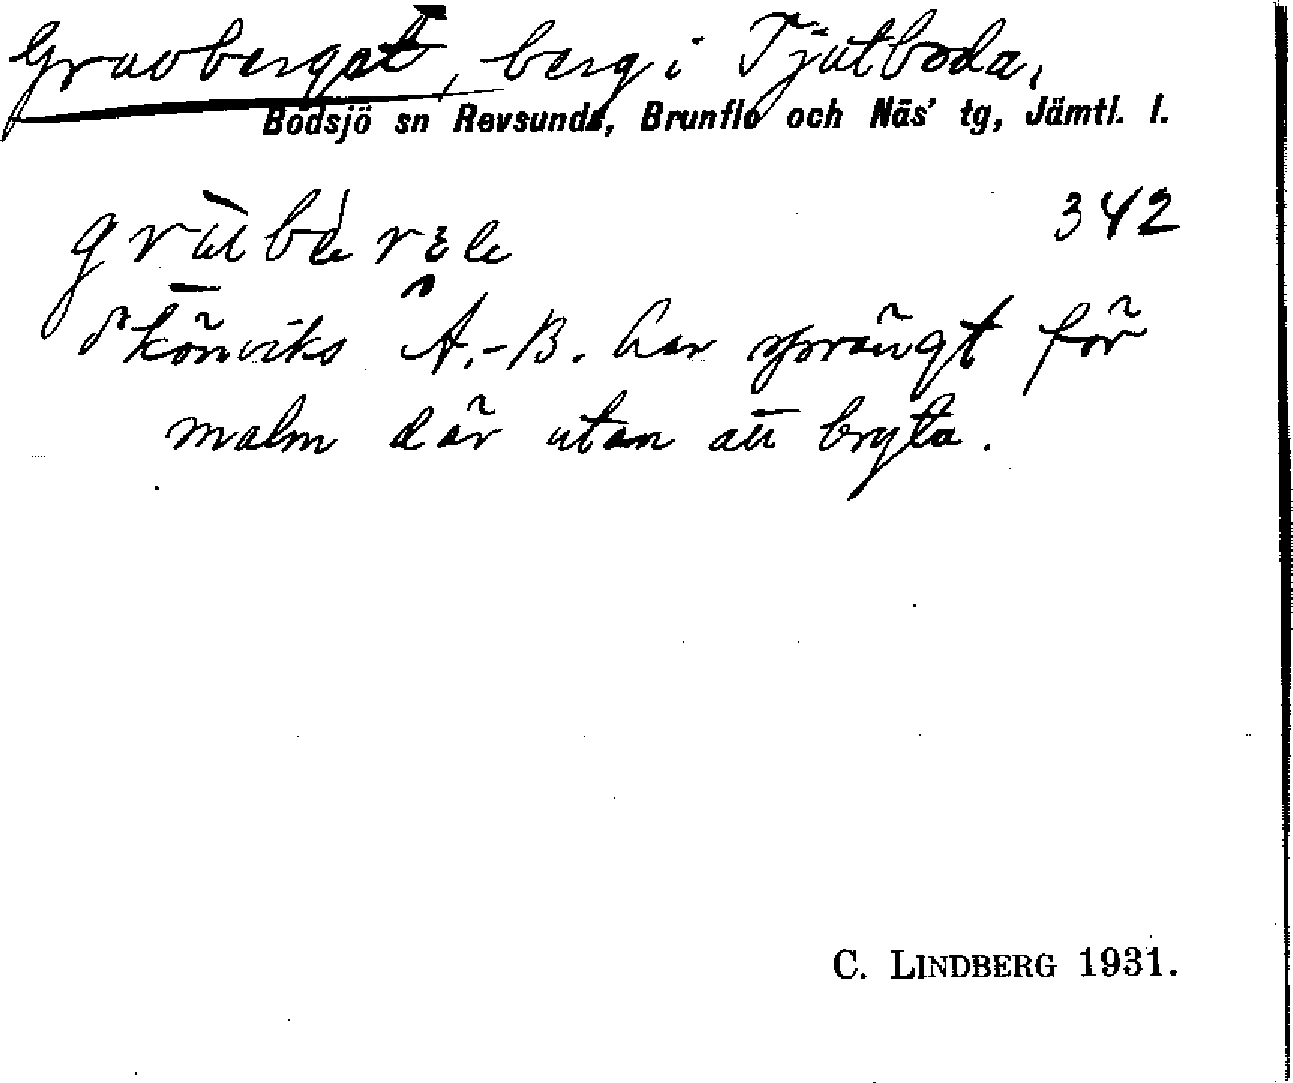 Gruvberget, berg i Tjutboda,
Bodsjö sn Revsunds, Brunflo och Näs' tg, Jämtl. l.
342
Skönviks A.-B. har sprängt för
malm där utan att bryta.
C. LINDBERG 1931.